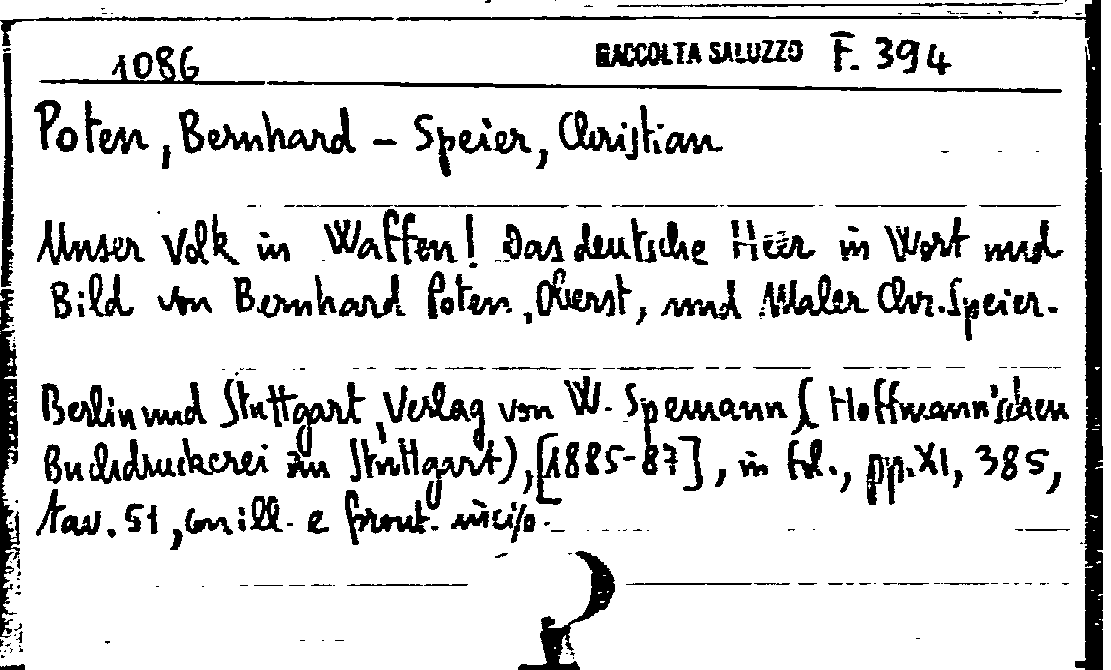 1086 RACCOLTA SALUZZO F. 394
Poten, Bernhard - Speier, Christian
Unser Volk in Waffen! Das deutsche Heer in Wort und
Bild von Bernhard Poten, Oberst, und Maler Chr. Speier.
Berlin und Stuttgart, Verlag von W. Spemann (Hoffmann'schen
Buchdruckerei in Stuttgart), [1885-87], in fol., pp. XI, 385,
tav. 51, con ill. e front. inciso.